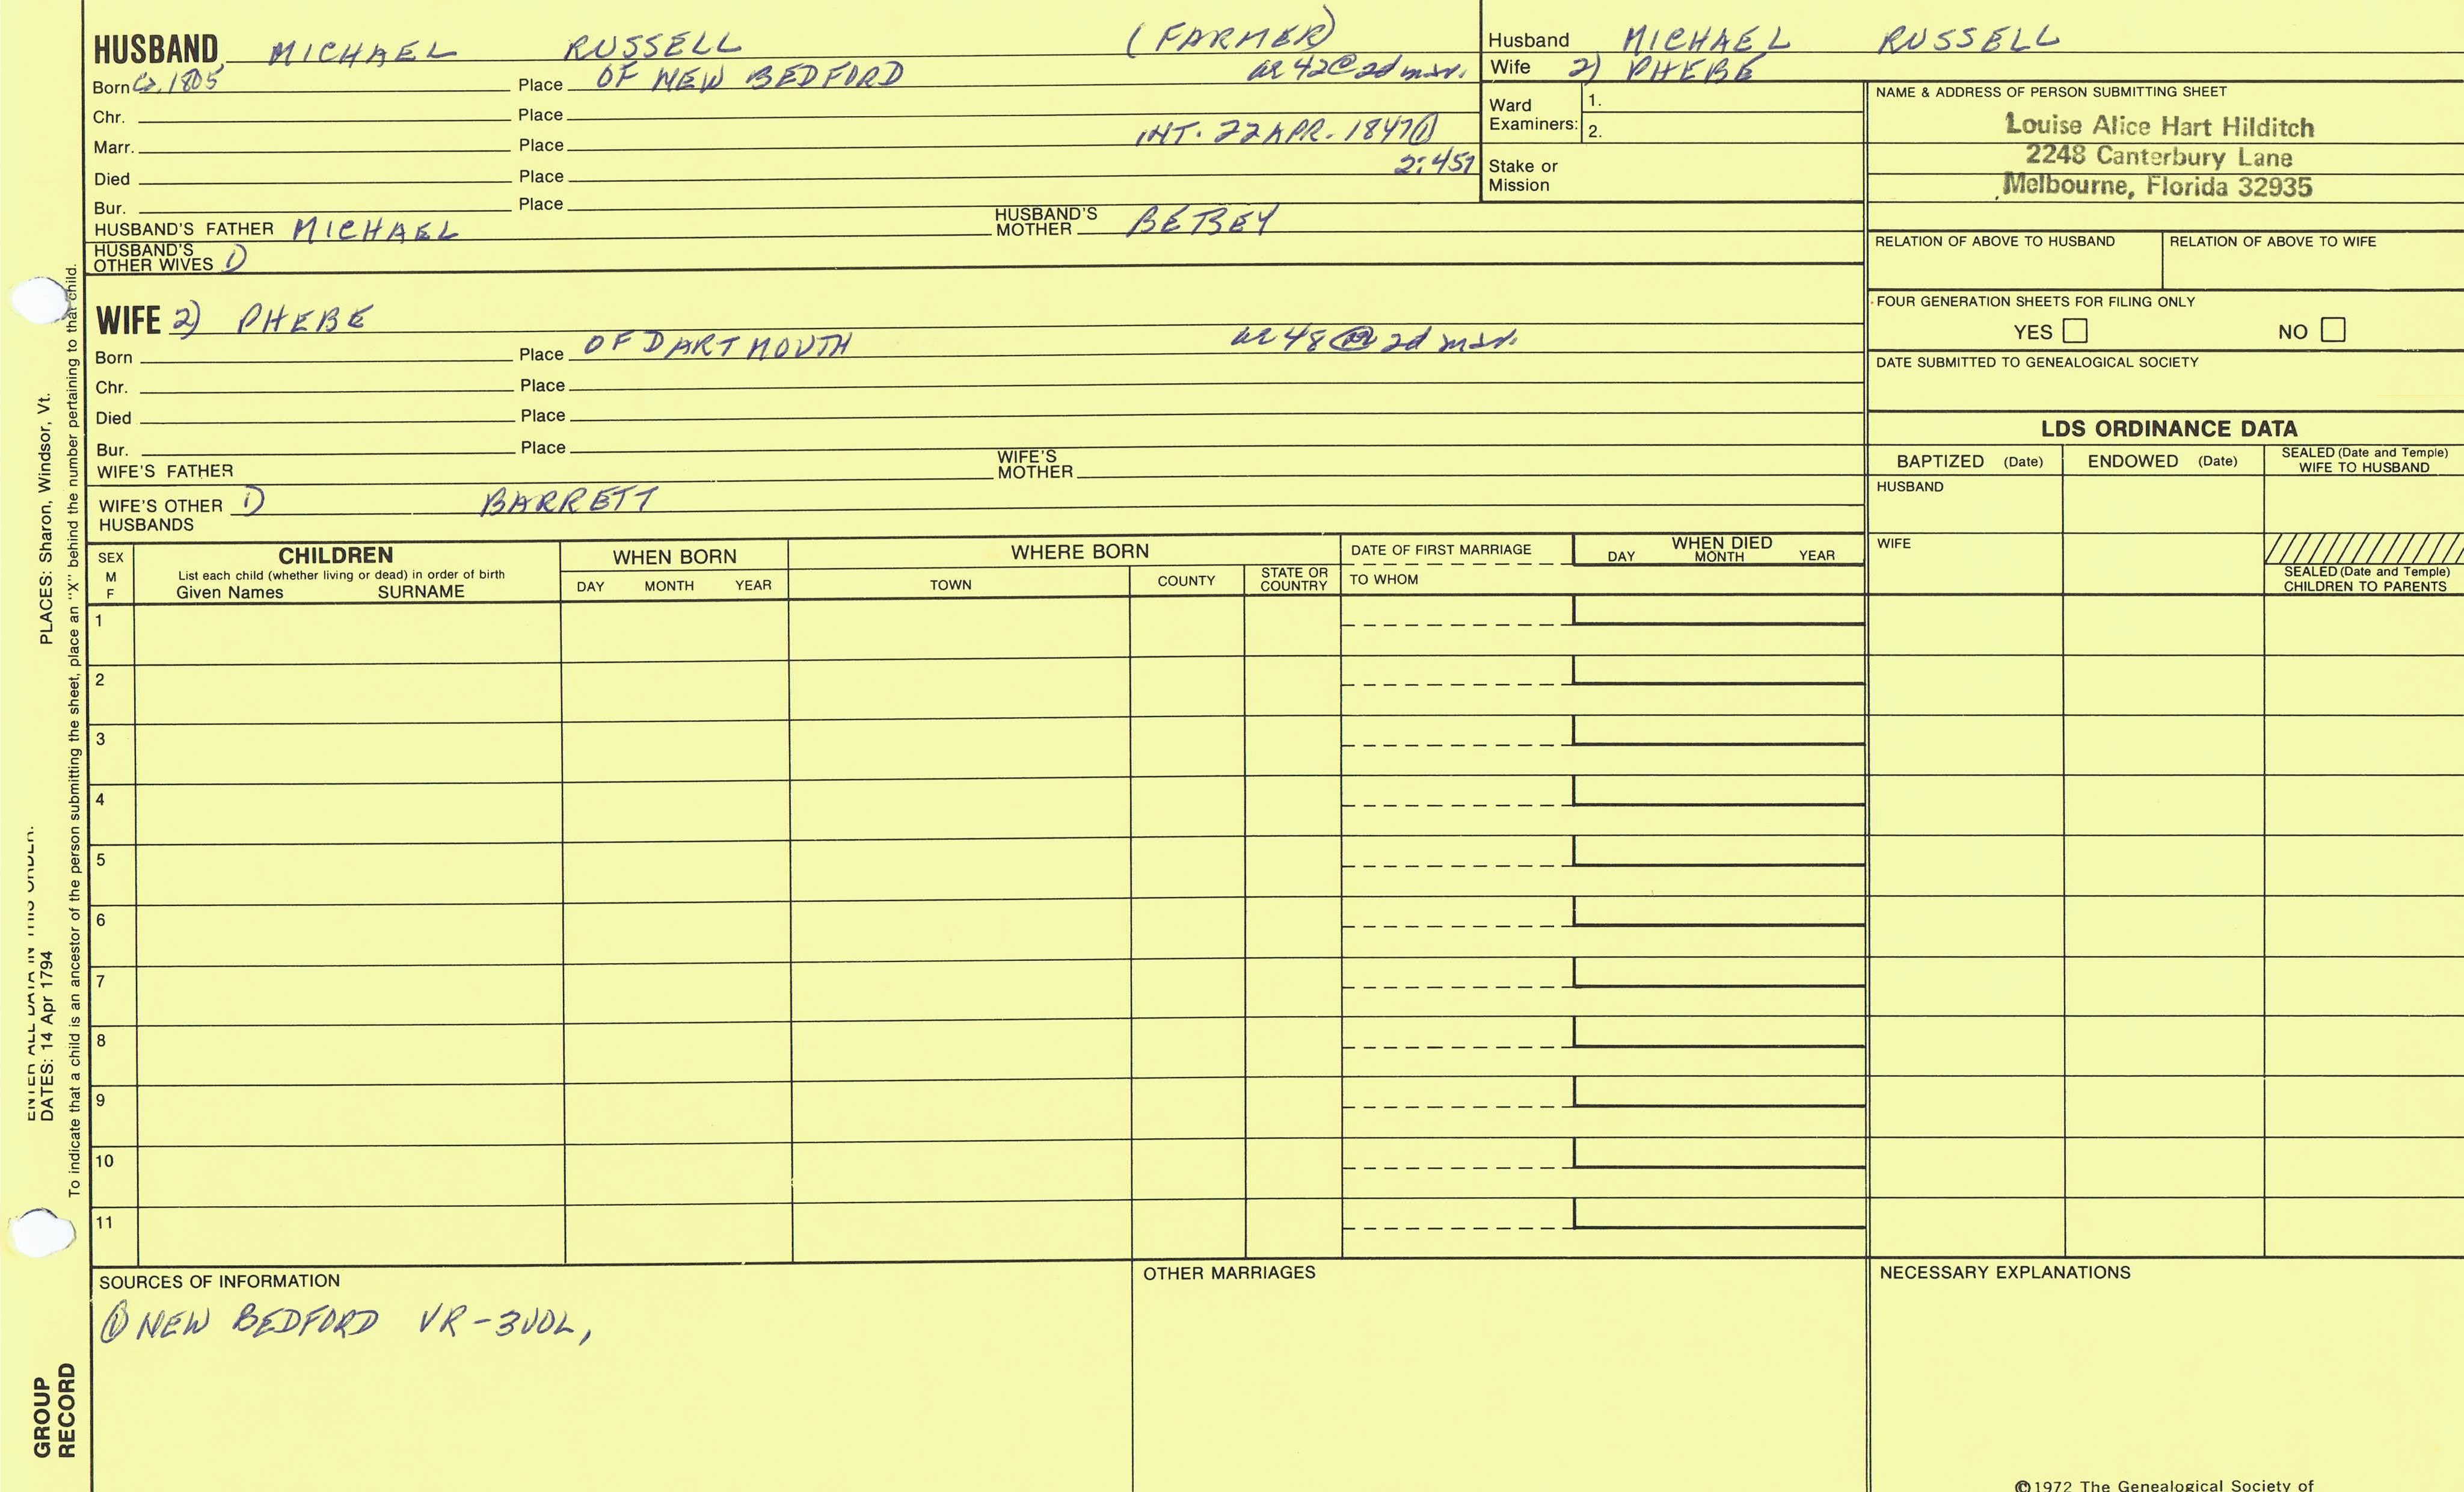 HUSBAND MICHAEL RUSSELL (FARMER)
Born Ca. 1805 Place OF NEW BEDFORD ae 42 @ 2d mar.
Chr. Place
Marr. Place INT. 22 APR. 1847 ①
Died Place 2:451
Bur. Place
HUSBAND'S FATHER MICHAEL HUSBAND'S MOTHER BETSEY
HUSBAND'S OTHER WIVES 1)
Husband MICHAEL RUSSELL
Wife 2) PHEBE
Ward Examiners: 1.
2.
Stake or Mission
NAME & ADDRESS OF PERSON SUBMITTING SHEET
Louise Alice Hart Hilditch
2248 Canterbury Lane
Melbourne, Florida 32935
RELATION OF ABOVE TO HUSBAND RELATION OF ABOVE TO WIFE
FOUR GENERATION SHEETS FOR FILING ONLY
YES NO
DATE SUBMITTED TO GENEALOGICAL SOCIETY
WIFE 2) PHEBE
Born Place OF DARTMOUTH ae 48 @ 2d mar.
Chr. Place
Died Place
Bur. Place
WIFE'S FATHER WIFE'S MOTHER
WIFE'S OTHER HUSBANDS 1) BARRETT
LDS ORDINANCE DATA
BAPTIZED (Date) ENDOWED (Date) SEALED (Date and Temple) WIFE TO HUSBAND
HUSBAND
WIFE
SEALED (Date and Temple) CHILDREN TO PARENTS
SEX M F
CHILDREN
List each child (whether living or dead) in order of birth
Given Names SURNAME
WHEN BORN
DAY MONTH YEAR
WHERE BORN
TOWN COUNTY STATE OR COUNTRY
DATE OF FIRST MARRIAGE
TO WHOM
WHEN DIED
DAY MONTH YEAR
1
2
3
4
5
6
7
8
9
10
11
SOURCES OF INFORMATION
① NEW BEDFORD VR-3VOL,
OTHER MARRIAGES
NECESSARY EXPLANATIONS
©1972 The Genealogical Society of
ENTER ALL DATA IN THIS ORDER:
DATES: 14 Apr 1794 PLACES: Sharon, Windsor, Vt.
To indicate that a child is an ancestor of the person submitting the sheet, place an "X" behind the number pertaining to that child.
GROUP
RECORD